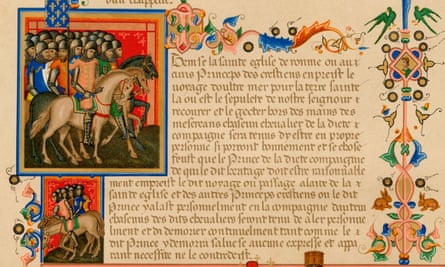 Item se la sainte eglise de romme ou au x
ans Princeps des crestiens enpreist le
voyage doultre mer pour la terre sainte
la ou est le sepulcre de nostre seignour et
recourer et le gecter hors des mains des
mescreans chascun chevalier de la dicte
compaigne sera tenus dy estre en propre
personne si pourront bonnement et se chose
feust que le Prince de la dicte compaigne
de qui le dit heritage doit estre raisonnable
ment empreist le dit voyage ou passage alaide de la
sainte eglise et des autres Princeps crestiens ou le dit
Prince yalast personelment en la compaigne dautrui
chascuns des dits chevaliers seront tenu de aler personne
lment et di demorer continuelment tant comme le
dit Prince y demorra salu se aucune expresse et appa
rant necessite ne le contredeist